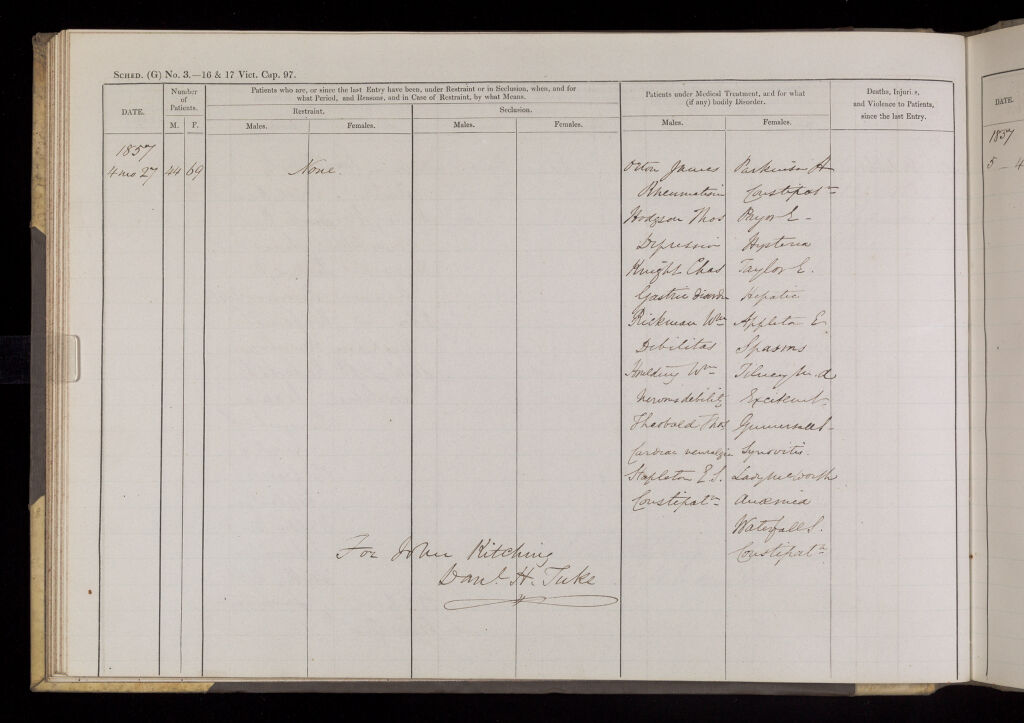 SCHED. (G) No. 3.—16 & 17 Vict. Cap. 97.
DATE.
Number of Patients.
M. F.
Patients who are, or since the last Entry have been, under Restraint or in Seclusion, when, and for
what Period, and Reasons, and in Case of Restraint, by what Means.
Restraint.
Seclusion.
Males. Females. Males. Females.
Patients under Medical Treatment, and for what
(if any) bodily Disorder.
Males. Females.
Deaths, Injuries,
and Violence to Patients,
since the last Entry.
1857
4 mo 27 44 69 None. Orton James Parkinson A
Rheumatism Constipatn
Hodgson Thos Pryor E -
Depression Hysteria
Knight Chas Taylor E.
Gastric disorder Hepatic
Rickman Wm Appleton E
Debilitas Spasms
Wm Tilney M. A
Nervous debility Excitemt
Theobald Thos
Cardiac neuralgia Synovitis.
Stapleton E S.
Constipatn Anæmia
Waterfall S.
Constipatn
For John Kitching
Danl. H. Tuke
DATE.
1857
5 — 4